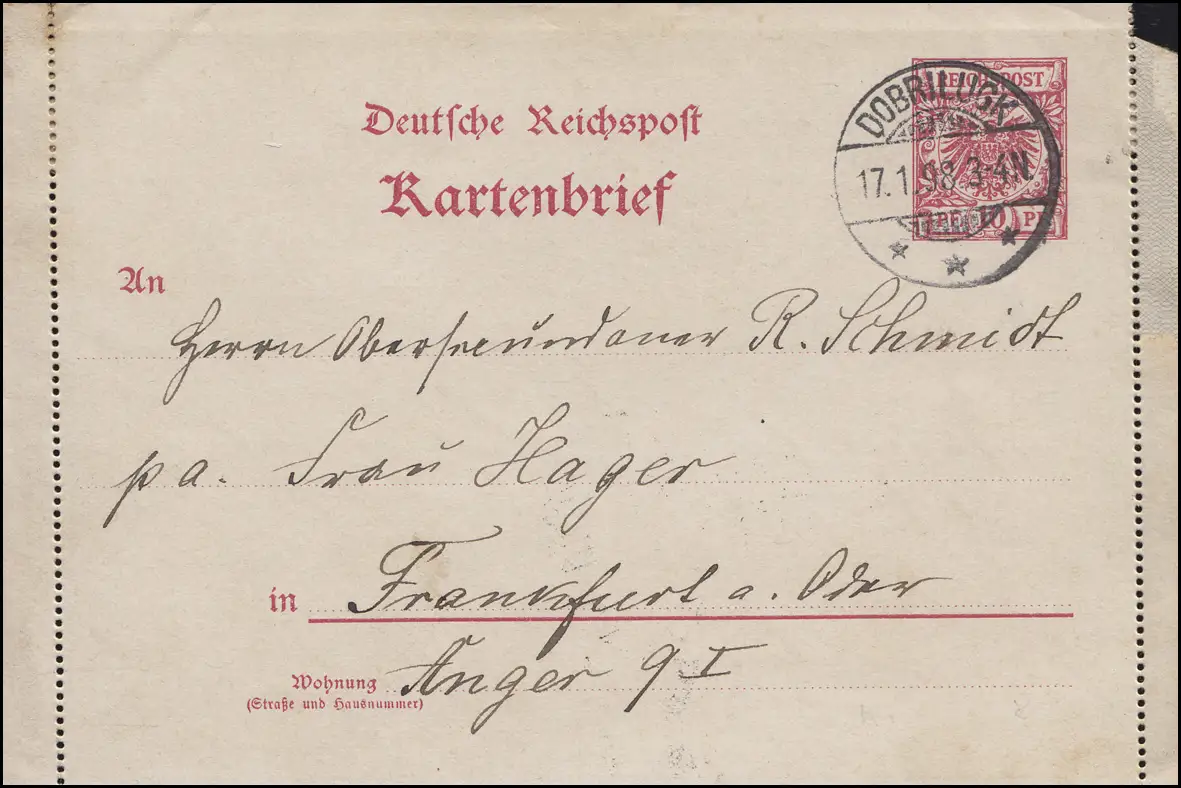 Deutsche Reichspost
Kartenbrief
REICHSPOST
DOBRILUGK
17.1.98.3-4N.
PF. 10 PF.
An
Herrn Obersecundaner R. Schmidt
p a. Frau Hager
in Frankfurt a. Oder
Anger 9 I
Wohnung
(Straße und Hausnummer)